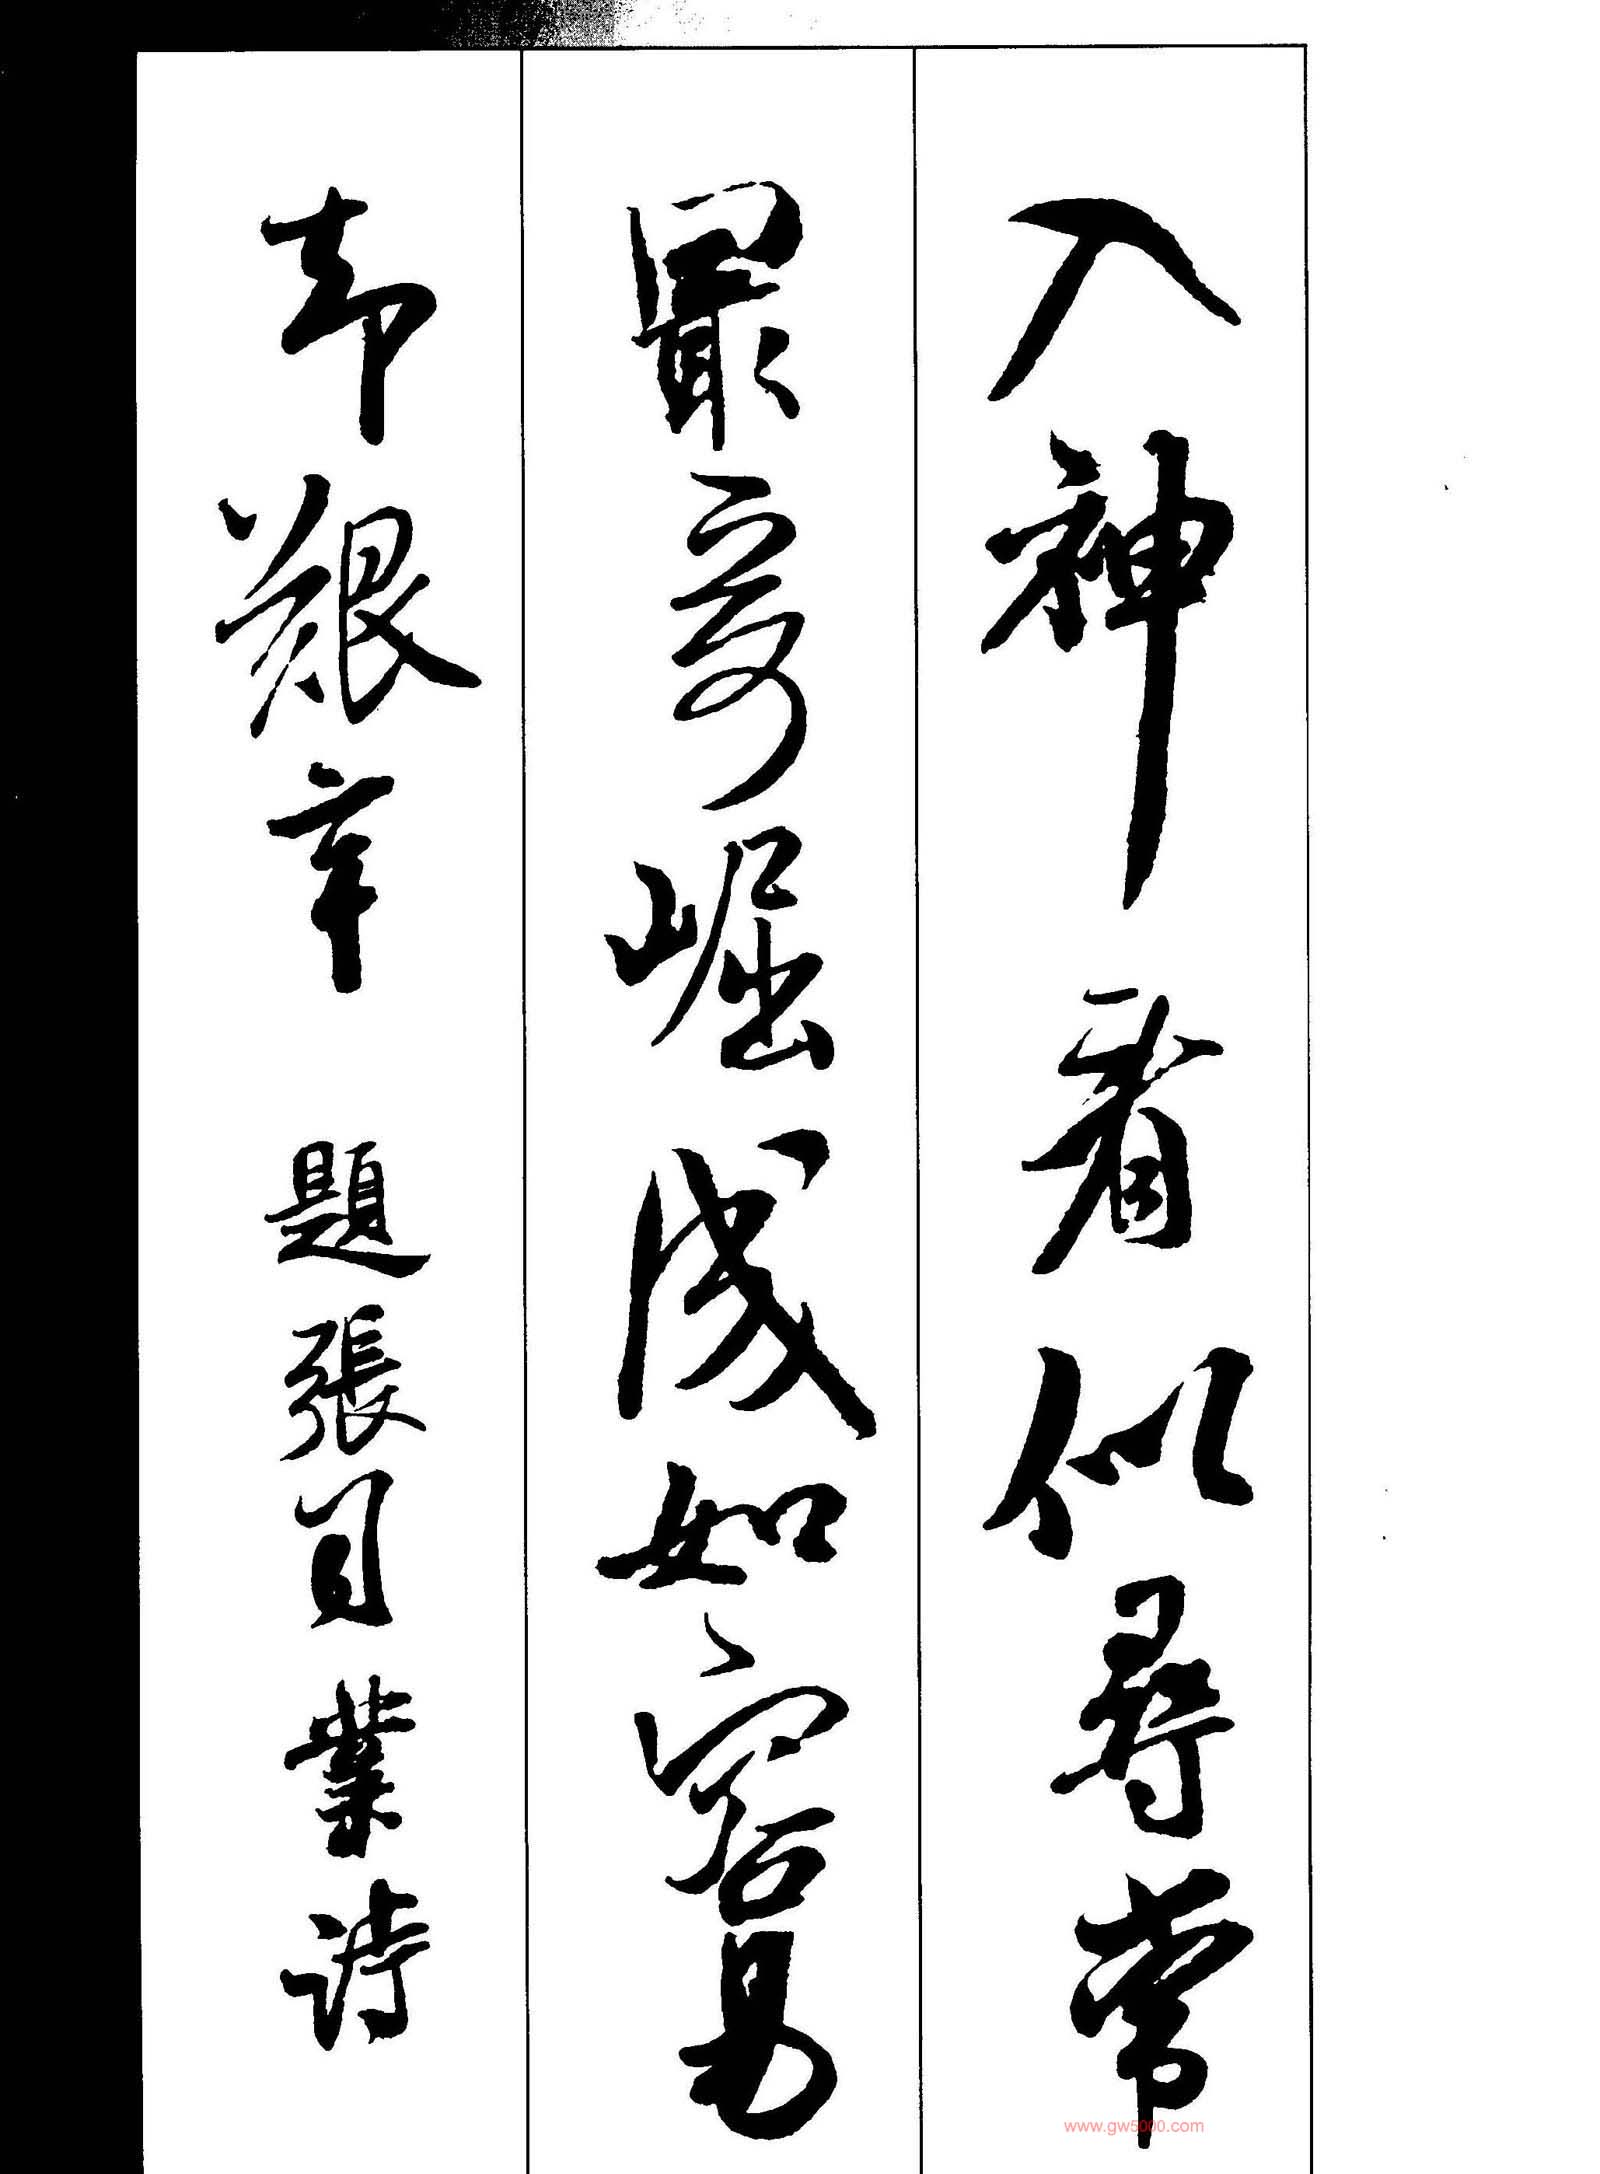 入神看似尋常
最奇崛成如容易
却艱辛 題張司業詩
www.gw5000.com